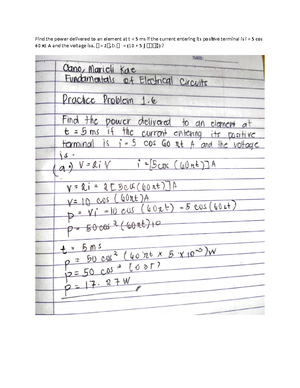 Find the power delivered to an element at t = 5 ms if the current entering its positive terminal is i = 5 cos
60 πt A and the voltage is a.
Cano, Marieli Kate
Fundamentals of Electrical Circuits
Practice Problem 1.6
Find the power delivered to an element at
t = 5 ms if the current entering its positive
terminal is i = 5 cos 60 πt A and the voltage
is:
(a.) V = 2i V i = [5cos (60πt)] A
V = 2i = 2 [5cos (60πt)] A
V = 10 cos (60πt) A
P = Vi = 10 cos (60πt) - 5 cos (60πt)
P = 50 cos² (60πt) 10
t = 5 ms
P = 50 cos² (60πt × 5 × 10⁻³) W
P = 50 cos²
P = 17.27 W